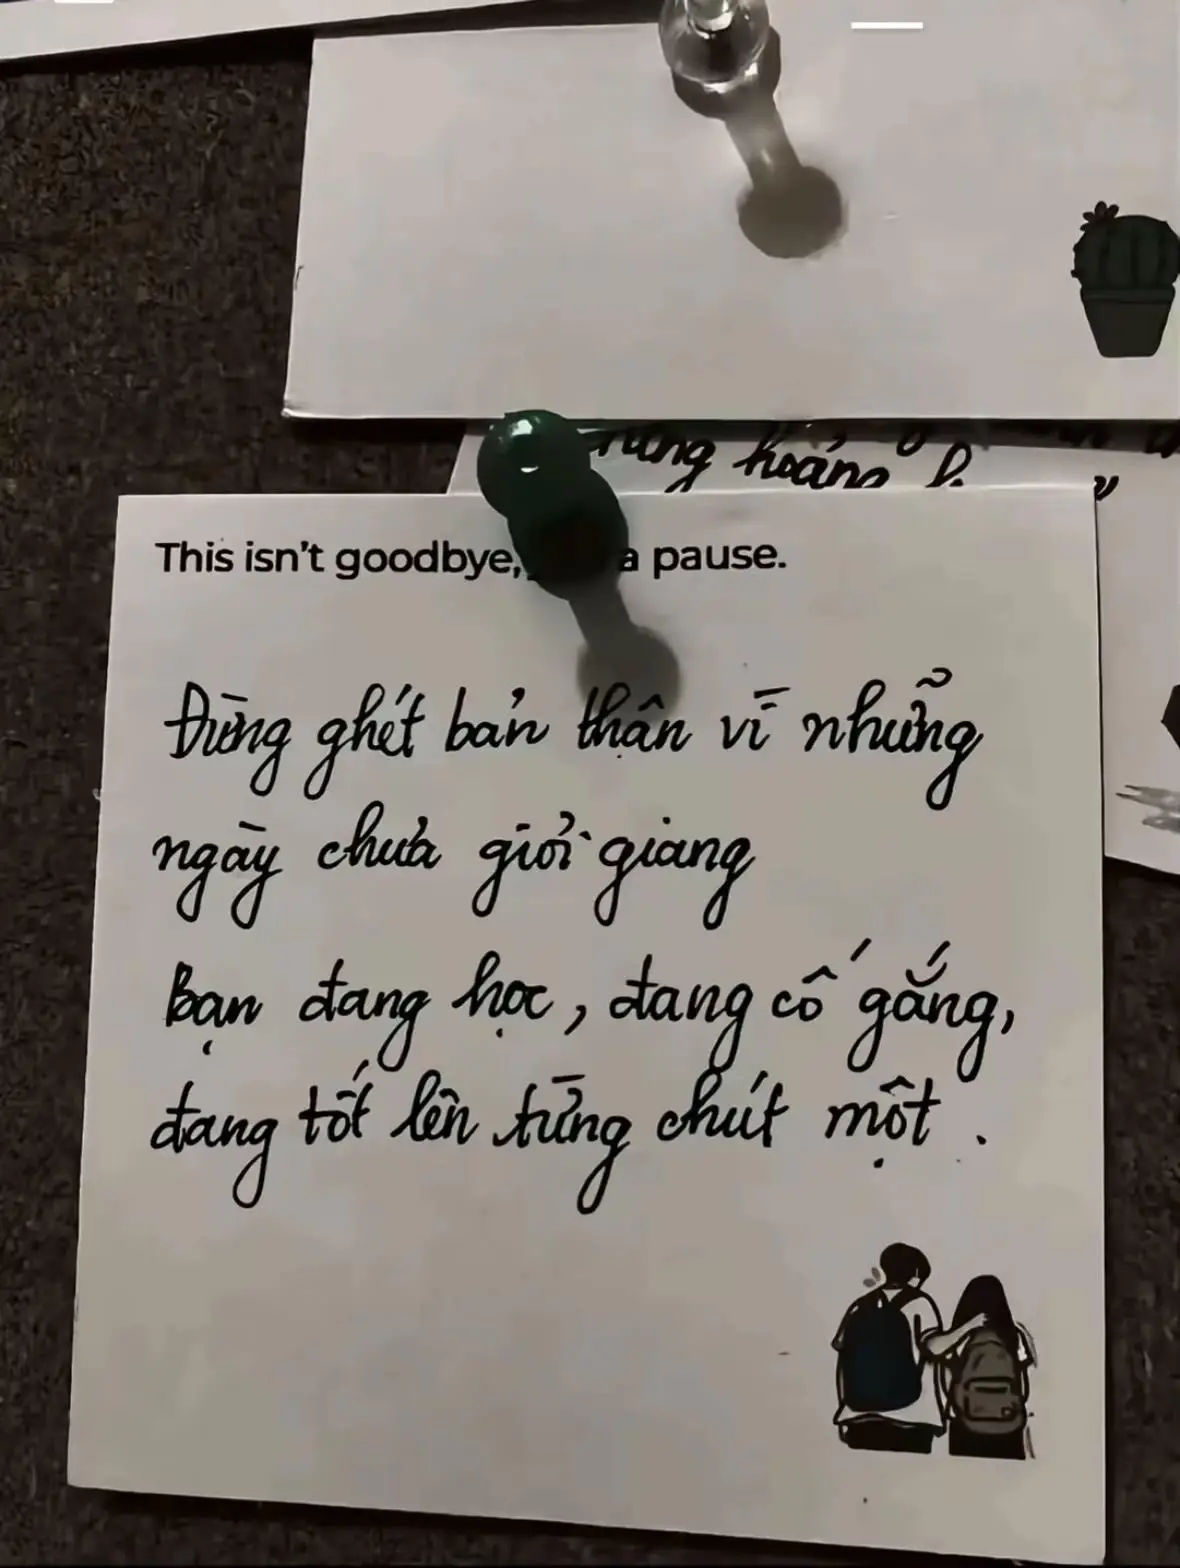 hoảng
This isn't goodbye, a pause.
Đừng ghét bản thân vì những
ngày chưa giỏi giang
Bạn đang học, đang cố gắng,
đang tốt lên từng chút một.